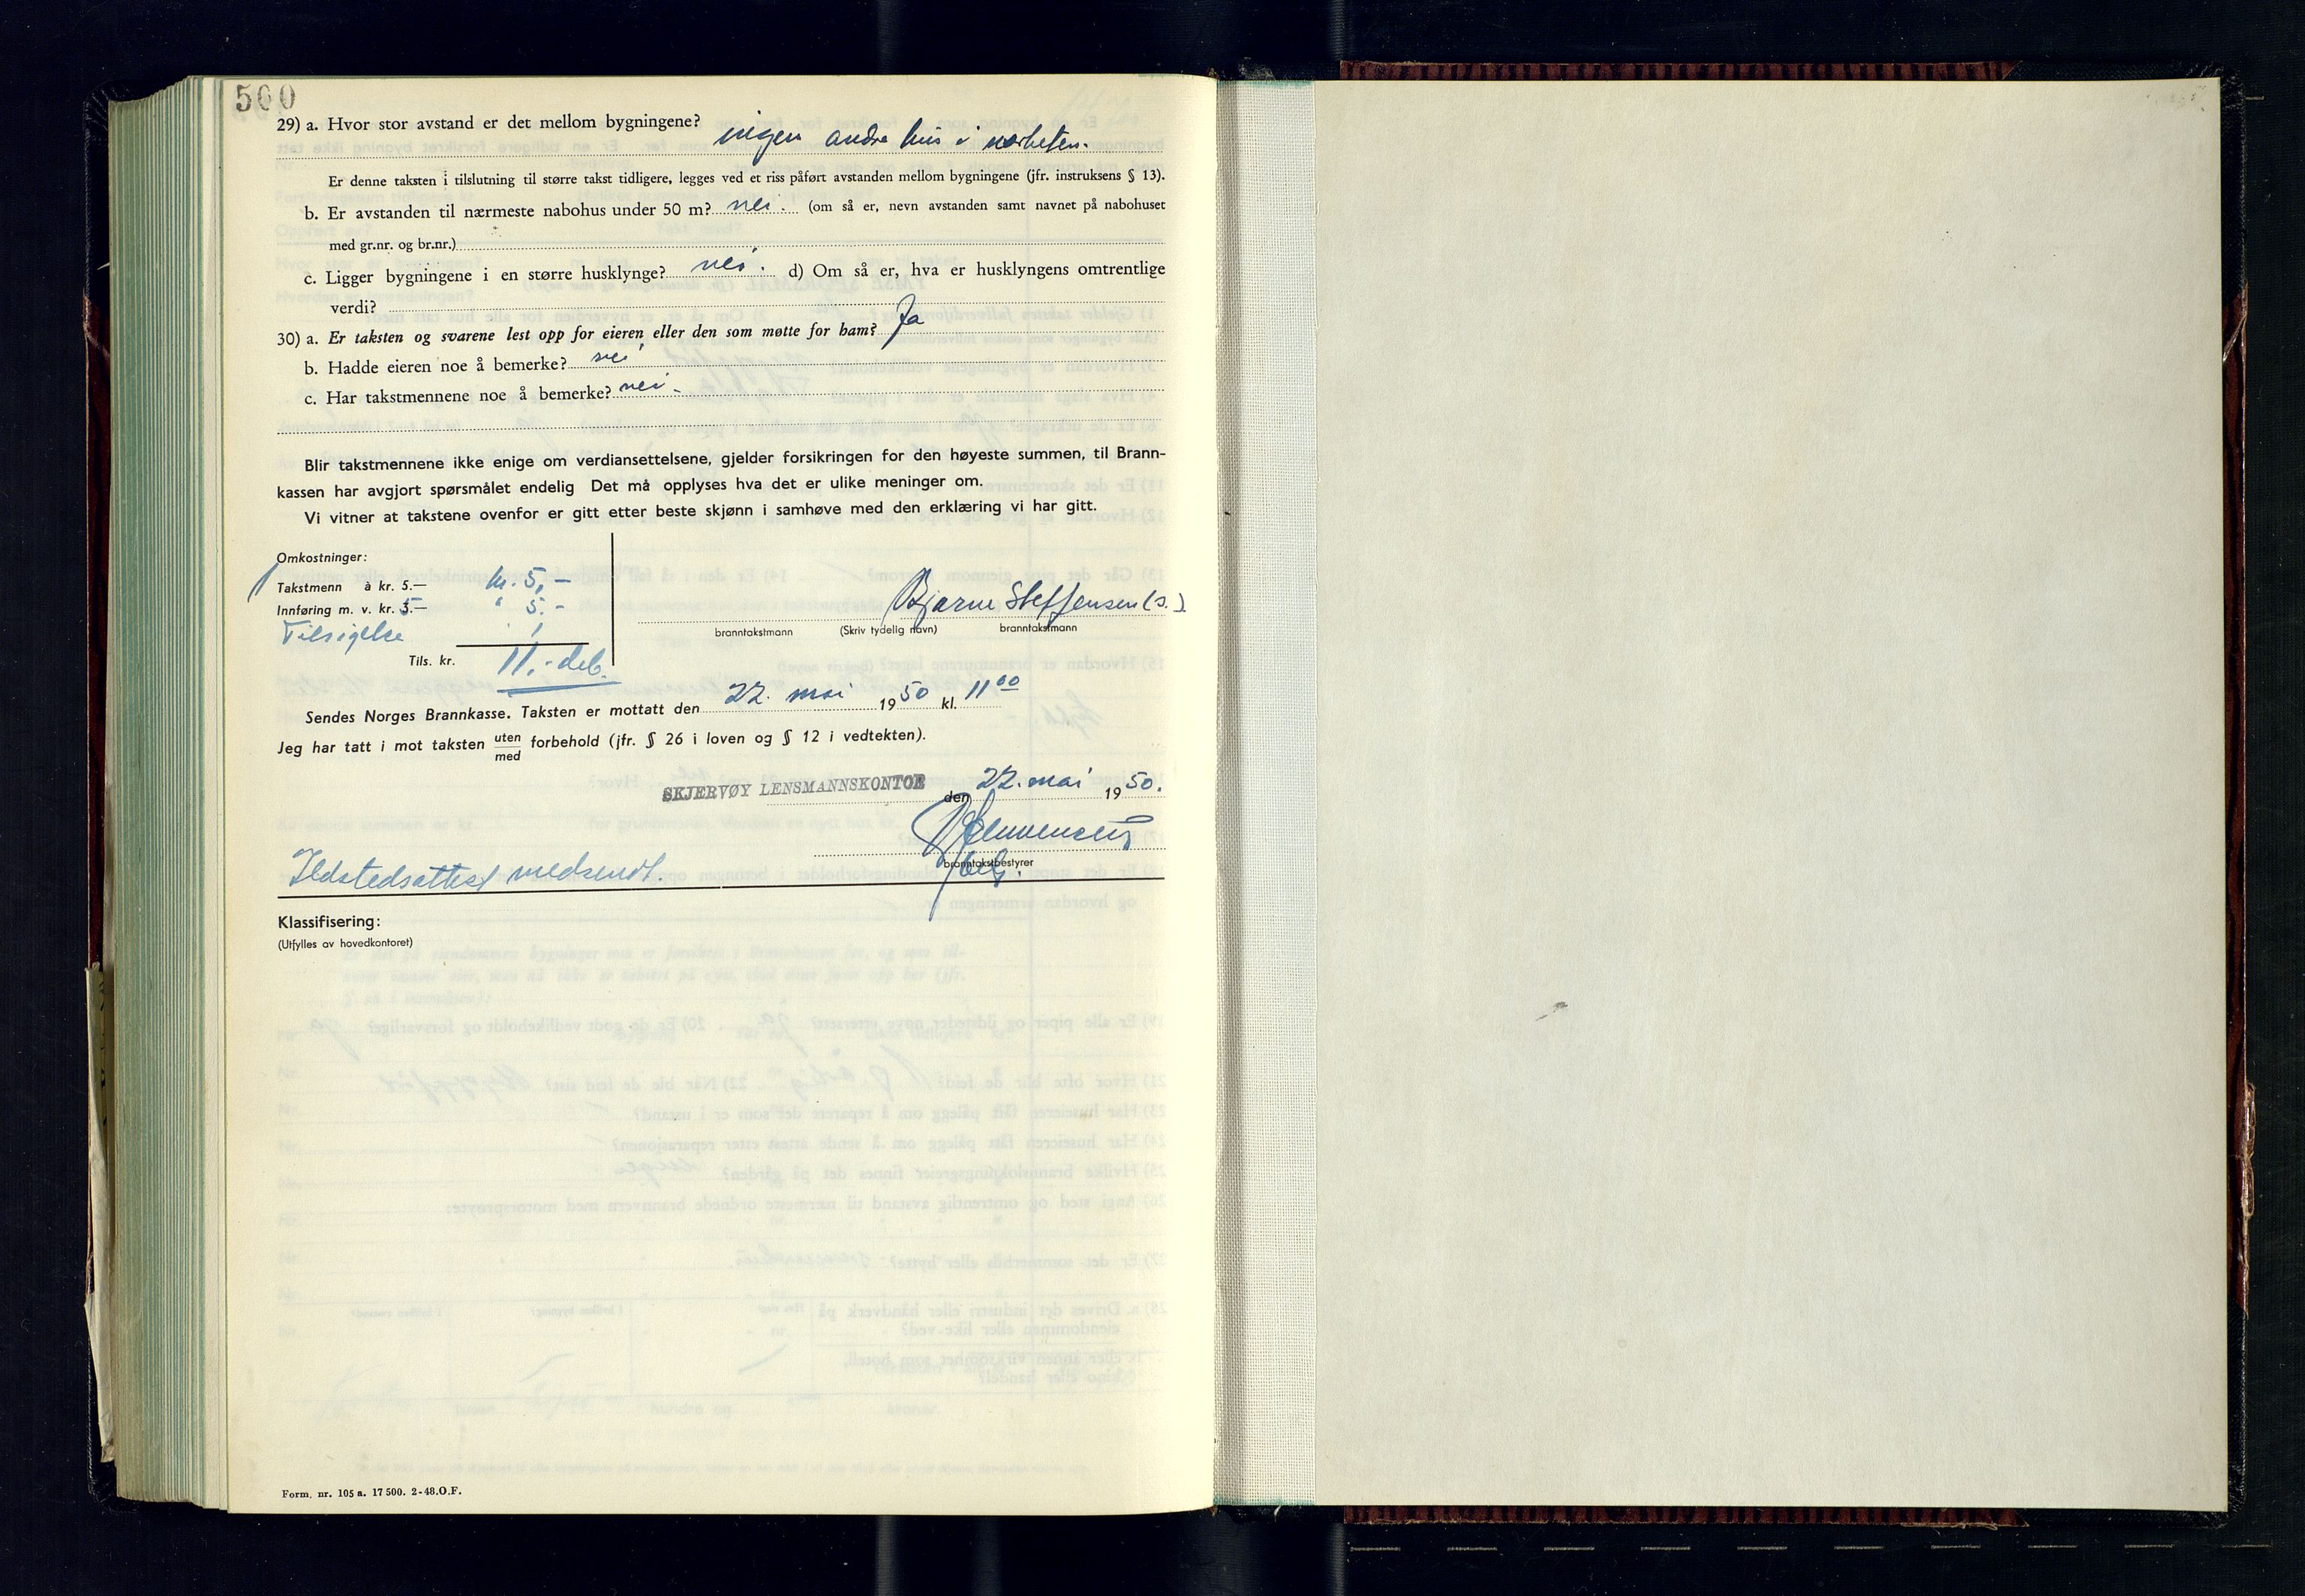 500
29) a. Hvor stor avstand er det mellom bygningene? ingen andre hus i nærheten.
Er denne taksten i tilslutning til større takst tidligere, legges ved et riss påført avstanden mellom bygningene (jfr. instruksens § 13).
b. Er avstanden til nærmeste nabohus under 50 m? nei. (om så er, nevn avstanden samt navnet på nabohuset
med gr.nr. og br.nr.)
c. Ligger bygningene i en større husklynge? nei. d) Om så er, hva er husklyngens omtrentlige
verdi?
30) a. Er taksten og svarene lest opp for eieren eller den som møtte for ham? Ja
b. Hadde eieren noe å bemerke? nei
c. Har takstmennene noe å bemerke? nei.
Blir takstmennene ikke enige om verdiansettelsene, gjelder forsikringen for den høyeste summen, til Brann-
kassen har avgjort spørsmålet endelig Det må opplyses hva det er ulike meninger om.
Vi vitner at takstene ovenfor er gitt etter beste skjønn i samhøve med den erklæring vi har gitt.
Omkostninger:
1 Takstmenn à kr. 5.— kr. 5,-
Innføring m. v. kr. 5.— " 5.-
Tilsigelse 1
Tils. kr. 11.- deb.
Bjarne Steffensen (s.)
branntakstmann (Skriv tydelig navn) branntakstmann
Sendes Norges Brannkasse. Taksten er mottatt den 22. mai 1950 kl. 11 00
Jeg har tatt i mot taksten uten/med forbehold (jfr. § 26 i loven og § 12 i vedtekten).
SKJERVØY LENSMANNSKONTOR den 22. mai 1950.
branntakstbestyrer
Ildstedsattest medsendt.
Klassifisering:
(Utfylles av hovedkontoret)
Form. nr. 105 a. 17 500. 2-48.O.F.